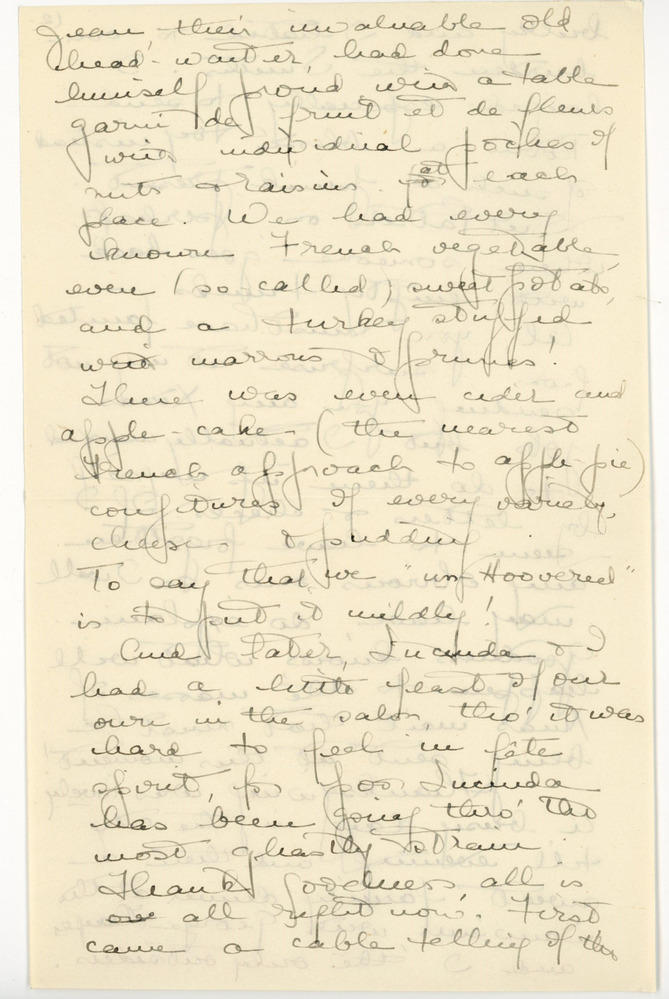 Jean, their invaluable old
head-waiter, had done
himself proud with a table
garni de fruit et de fleurs
with individual poches of
nuts & raisins at each
place. We had every
known French vegetable,
even (so-called) sweet potato,
and a turkey stuffed
with marrons & prunes!
There was even cider and
apple-cake - (the nearest
French approach to apple-pie)
confitures of every variety,
cheeses & pudding.
To say that we "un-Hoovered"
is to put it mildly!
And later, Lucinda & I
had a little feast of our
own in the salon, tho' it was
hard to feel in fête
spirit, for poor Lucinda
has been going thro' the
most ghastly strain.
Thank goodness, all is
all right now. First
came a cable telling of the